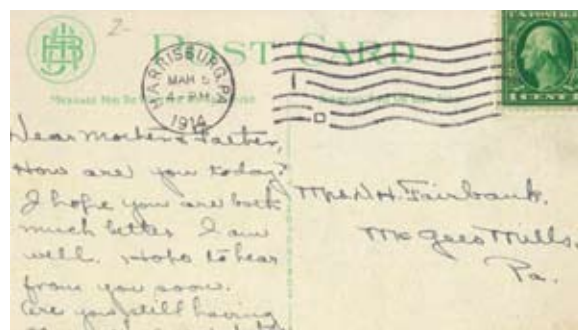 2-
POST CARD
HARRISBURG, PA.
MAR 5
4 - PM
1914
U.S. POSTAGE
1 CENT 1
Dear Mother & Father,
How are you today?
I hope you are both
much better I am
well. Hope to hear
from you soon.
Are you still having
Mrs N. H. Fairbank.
McGees Mills.
Pa.